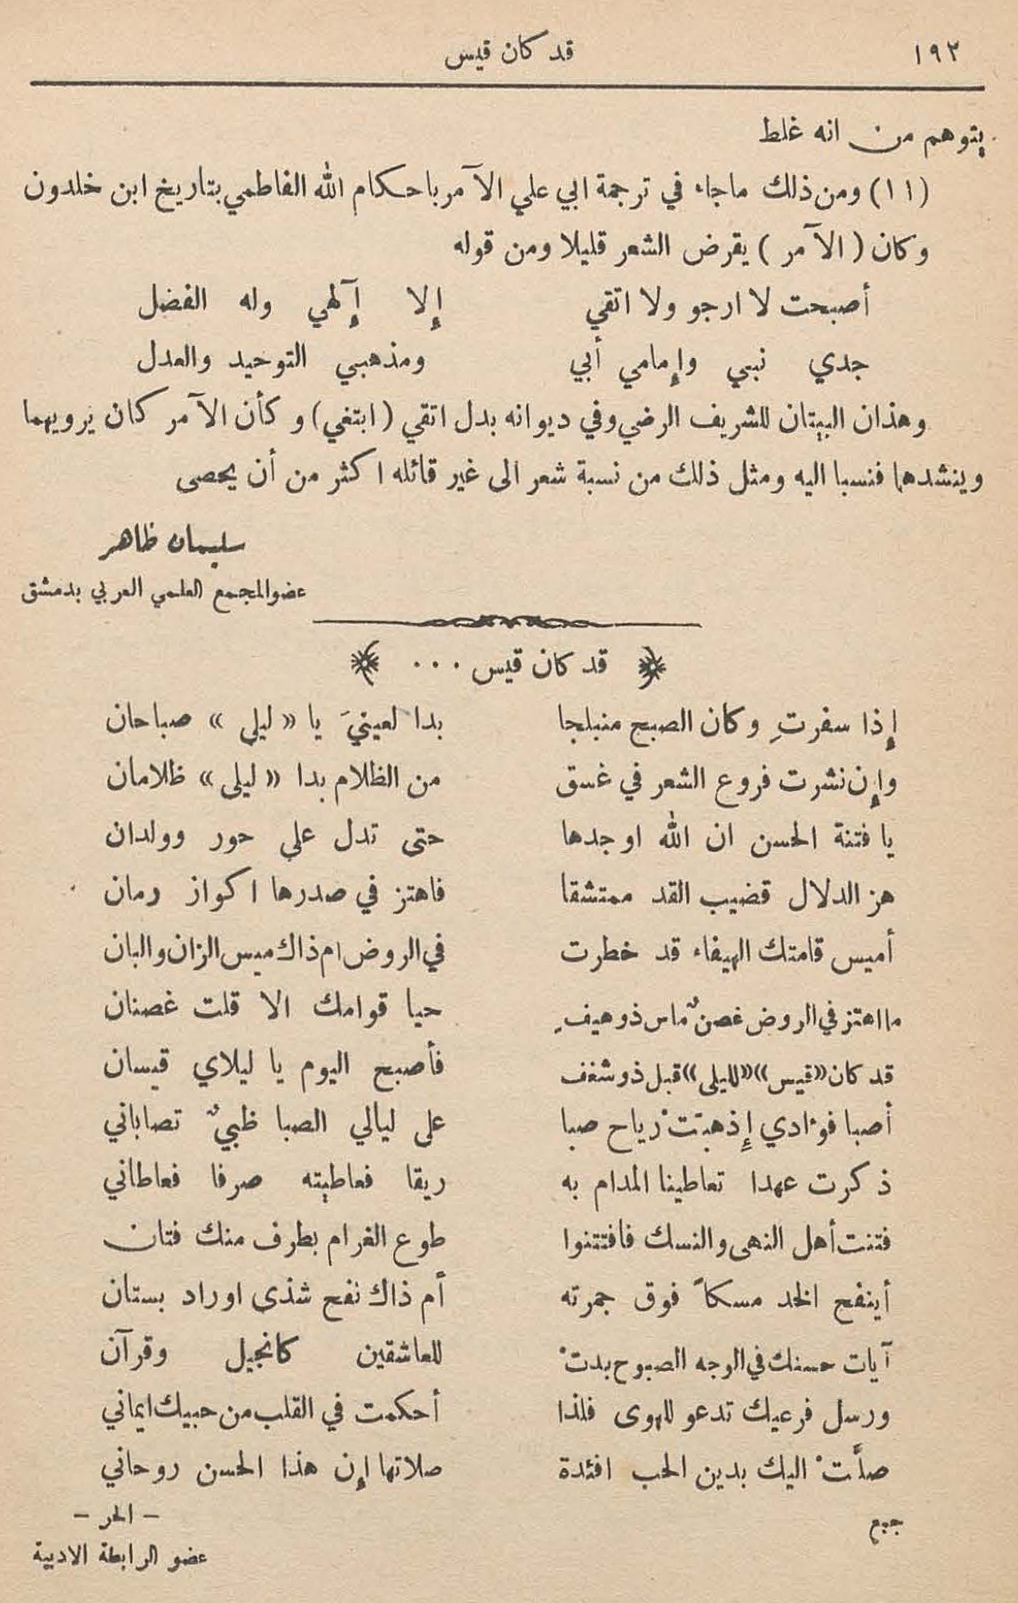 ١٩٢
قد كان قيس
يتوهم من انه غلط
(١١) ومن ذلك ماجاء في ترجمة ابي علي الآمر باحكام الله الفاطمي بتاريخ ابن خلدون
وكان ( الآمر ) يقرض الشعر قليلا ومن قوله
أصبحت لا ارجو ولا اتقي إلا إآلهي وله الفضل
جدي نبي وإمامي أبي ومذهبي التوحيد والعدل
وهذان البيتان للشريف الرضي وفي ديوانه بدل اتقي ( ابتغي ) و كأن الآمر كان يرويهما
وينشدهما فنسبا اليه ومثل ذلك من نسبة شعر الى غير قائله اكثر من أن يحصى
سليمان ظاهر
عضو المجمع العلمي العربي بدمشق
قد كان قيس ...
إذا سفرتِ وكان الصبح منبلجا بدا لعينيَ يا « ليلى » صباحان
وإن نشرت فروع الشعر في غسق من الظلام بدا « ليلى » ظلامان
يا فتنة الحسن ان الله اوجدها حتى تدل على حور وولدان
هز الدلال قضيب القد ممتشقا فاهتز في صدرها اكواز رمان
أميس قامتك الهيفاء قد خطرت في الروض ام ذاك ميس الزان والبان
ما اهتز في الروض غصنٌ ماس ذو هيفٍ حيا قوامك الا قلت غصنان
قد كان «قيس» «لليلى» قبل ذو شغف فأصبح اليوم يا ليلاي قيسان
أصبا فؤادي إذ هبّتْ رياح صبا على ليالي الصبا ظبيٌ تصاباني
ذكرت عهدا تعاطينا المدام به ريقا فعاطيته صرفا فعاطاني
فتنت أهل النهى والنسك فافتتنوا طوع الغرام بطرف منك فتان
أينفح الخد مسكاً فوق جمرته أم ذاك نفح شذى اوراد بستان
آيات حسنك في الوجه الصبوح بدتْ للعاشقين كانجيل وقرآن
ورسل فرعيك تدعو للهوى فلذا أحكمت في القلب من حبيك ايماني
صلَّتْ اليك بدين الحب افئدة صلاتها إن هذا الحسن روحاني
جبع
– الحر –
عضو الرابطة الادبية